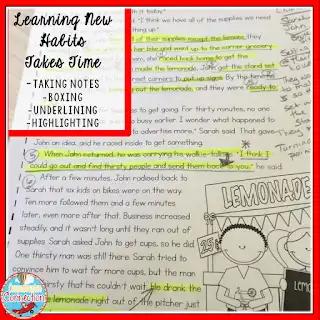 Learning New
Habits
Takes Time
-TAKING NOTES
-BOXING
-UNDERLINING
-HIGHLIGHTING
"I think we have all of the supplies we need
of their supplies except the lemons, they
her bike and went up to the corner grocery
raced back home to get the
made the lemonade, John got the stand set
street corners to put up signs. By the time
out the lemonade, and they were ready to
to get going. For thirty minutes, no one
busy earlier. I wonder what happened to
to advertise more," Sarah said. That gave
John an idea, and he raced inside to get something.
When John returned, he was carrying his walkie-talkie. "I think I
could go out and find thirsty people and send them back to you," he said.
After a few minutes, John radioed back to
Sarah that six kids on bikes were on the way.
Ten more followed them and a few minutes
later, even more after that. Business increased
steadily, and it wasn't long until they ran out of
supplies. Sarah asked John to get cups, so he did.
One thirsty man was still there. Sarah tried to
convince him to wait for more cups, but the man
thirsty that he couldn't wait. He drank the
lemonade right out of the pitcher just
Sarah
John
They
Turning
point
LEMONADE
25
LEM
Connection